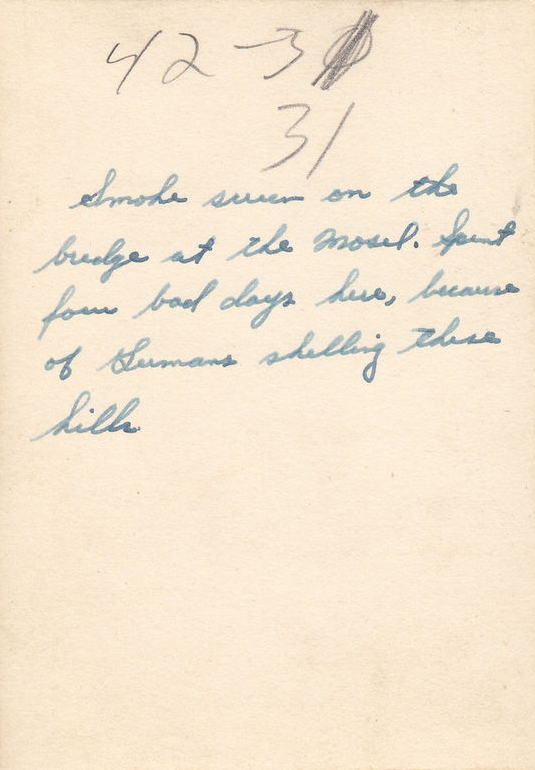 42-3
31
Smoke screen on the
bridge at the Mosel. Spent
four bad days here, because
of Germans shelling these
hills